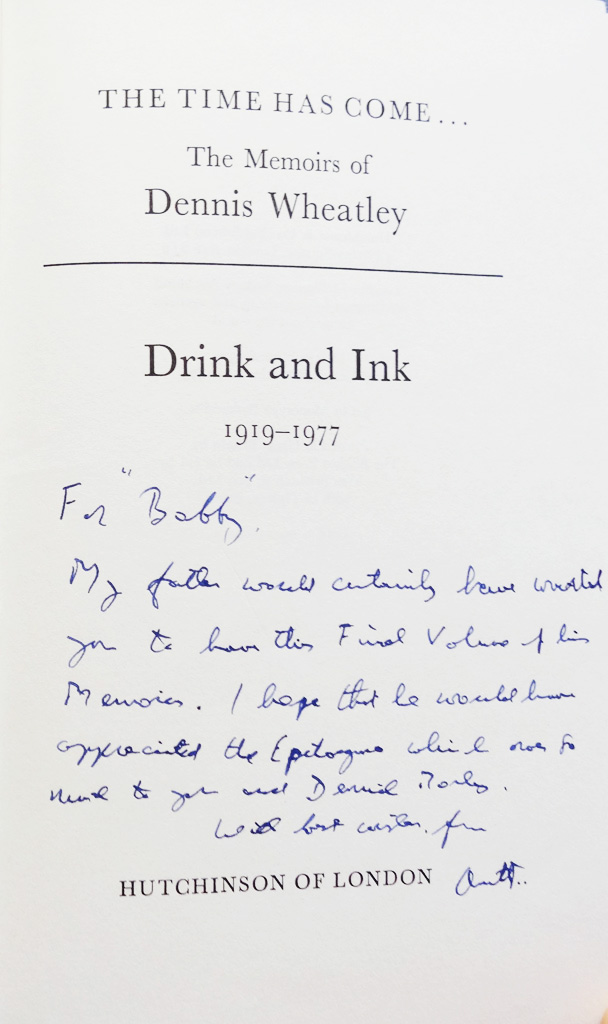 THE TIME HAS COME...
The Memoirs of
Dennis Wheatley
Drink and Ink
1919–1977
For "Bobby".
My father would certainly have wanted
you to have this Final Volume of his
Memoirs. I hope that he would have
appreciated the Epilogue which owes so
much to you and Derrick Morley.
With best wishes from
HUTCHINSON OF LONDON